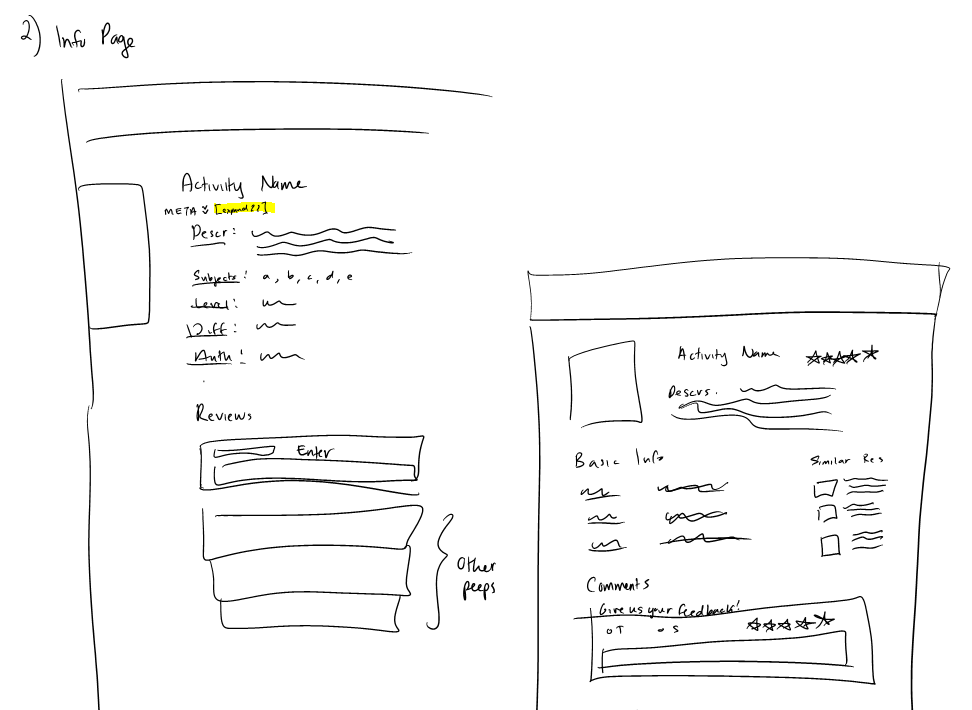 2) Info Page
Activity Name
META [expand??]
Descr:
Subjects: a, b, c, d, e
Level:
Diff:
Auth:
Reviews
Enter
Other
peeps
Activity Name
Descrs.
Basic Info
Similar Res
Comments
Give us your feedback!
T S